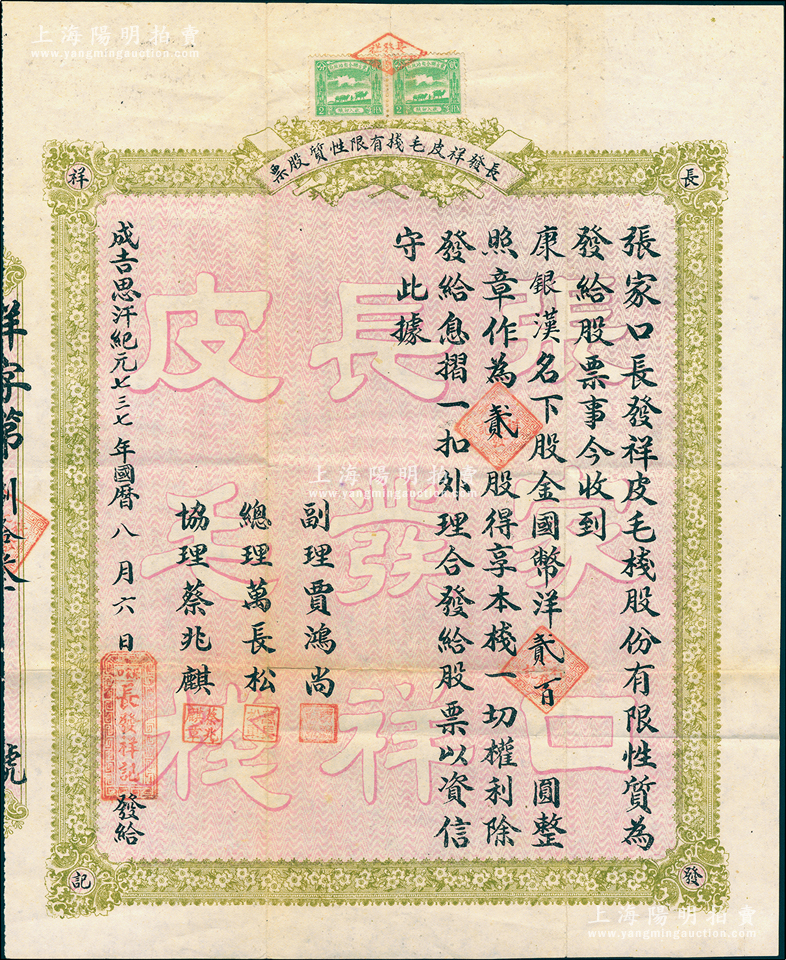 上海陽明拍賣
www.yangmingauction.com
長發祥
長發祥皮毛棧有限性質股票
長
發
祥
記
張家口
長發祥
皮毛棧
張家口長發祥皮毛棧股份有限性質為
發給股票事今收到
康銀漢名下股金國幣洋貳百圓整
照章作為貳股得享本棧一切權利除
發給息摺一扣外理合發給股票以資信
守此據
副理賈鴻尚
總理萬長松
協理蔡兆麒
成吉思汗紀元七三七年國曆八月六日
長發祥記
發給
祥字第
號
上海陽明拍賣
www.yangmingauction.com
上海陽明拍賣
www.yangmingauction.com